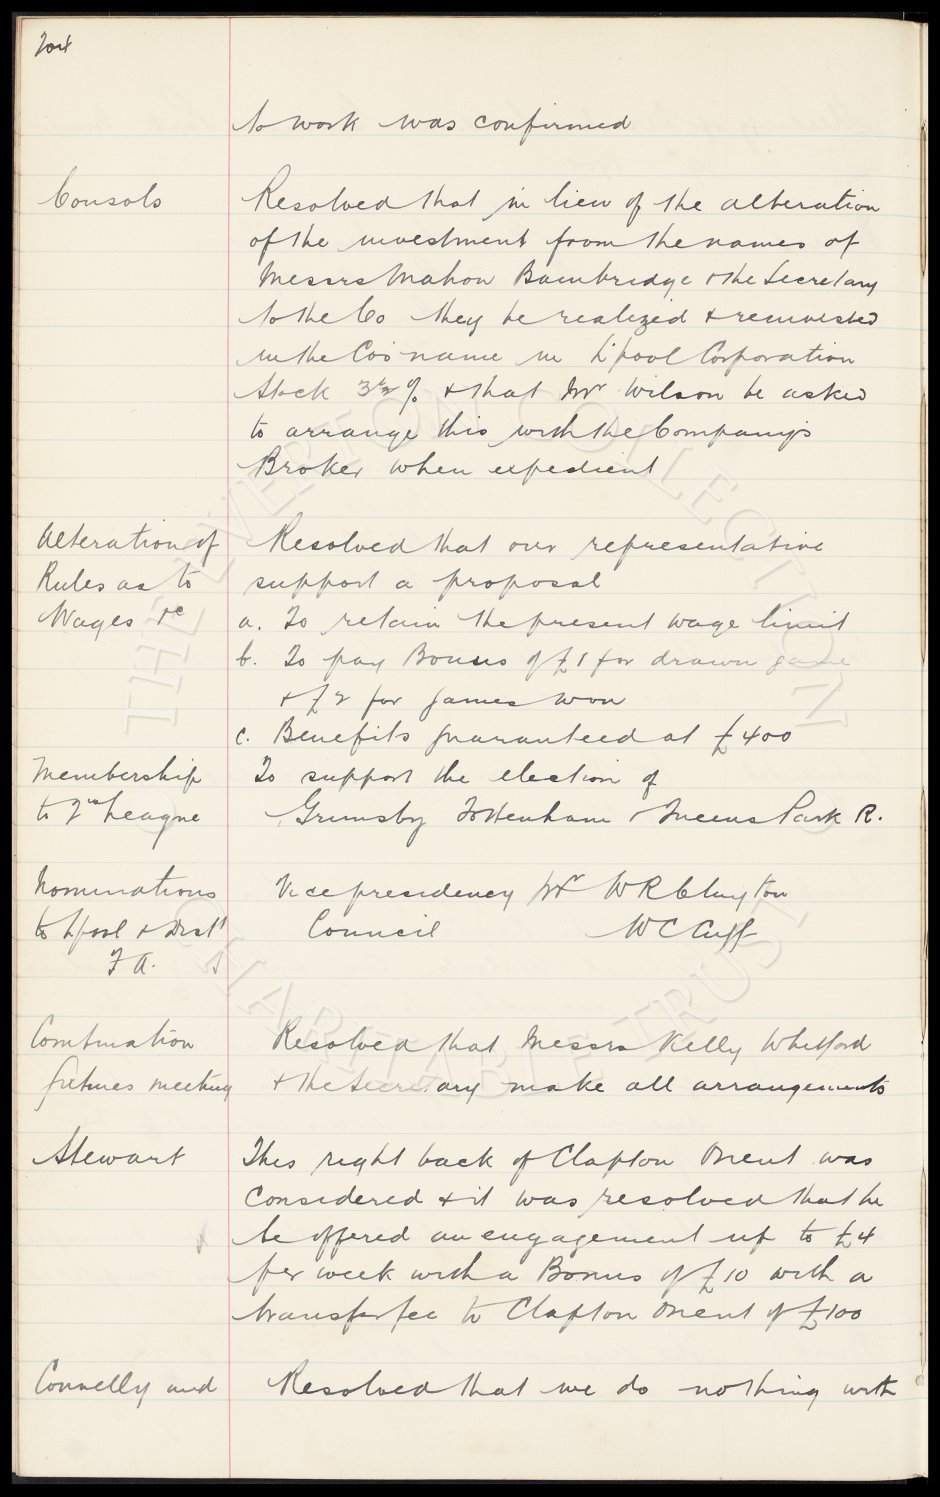 204
to work was confirmed
Consols Resolved that in lieu of the alteration
of the investment from the names of
Messrs Mahon Bainbridge & the Secretary
to the Co they be realized & reinvested
in the Co's name in L'pool Corporation
Stock 3½% & that Mr Wilson be asked
to arrange this with the Company's
Broker when expedient
Alteration of Resolved that our representative
Rules as to support a proposal
Wages &c a. To retain the present wage limit
b. To pay Bonus of £1 for drawn game
& £2 for games won
c. Benefits guaranteed at £400
Membership To support the election of
to 2nd League Grimsby Tottenham & Queens Park R.
Nominations Vice presidency Mr W R Clayton
to L'pool & Dist Council W C Cuff
F A.
Combination Resolved that Messrs Kelly Whitford
fixtures meeting & the Secretary make all arrangements
Stewart This right back of Clapton Orient was
considered & it was resolved that he
be offered an engagement up to £4
per week with a Bonus of £10 with a
transfer fee to Clapton Orient of £100
Connelly and Resolved that we do nothing with
THE EVERTON COLLECTION
CHARITABLE TRUST